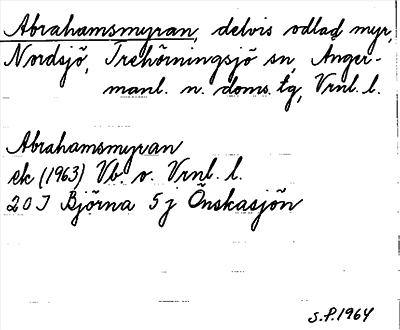 Abrahamsmyran, delvis odlad myr,
Nordsjö, Trehörningsjö sn, Anger-
manl. n. doms. tg, Vrnl. l.
Abrahamsmyran
ek (1963) Vb. o. Vrnl. l.
20 J Björna 5 j Önskasjön
S.P. 1964